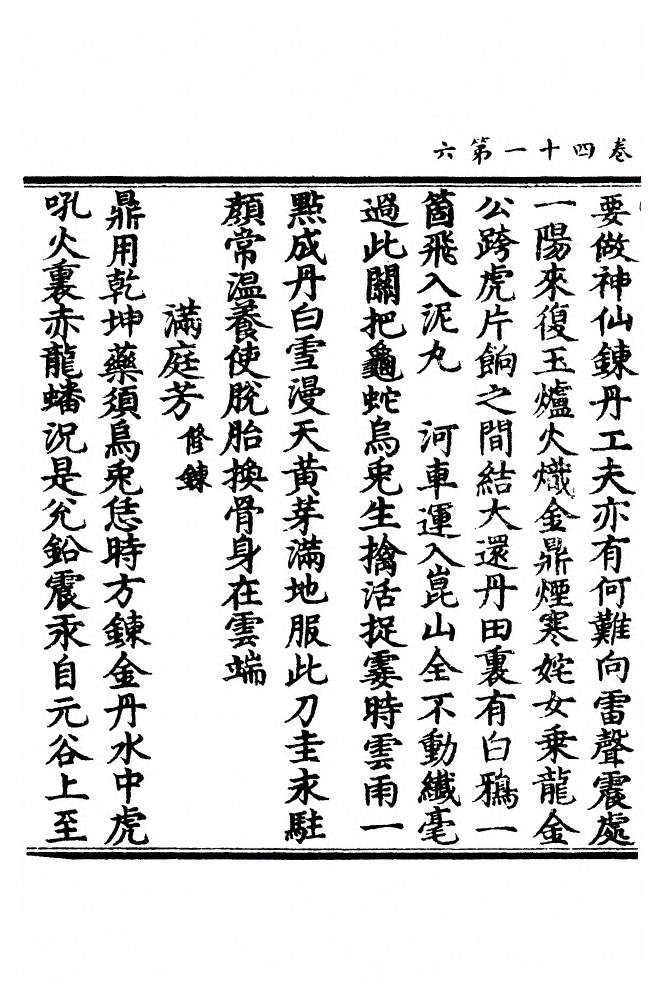 卷四十一第六
要做神仙鍊丹工夫亦有何難向雷聲震處
一陽來復玉爐火熾金鼎煙寒姹女乗龍金
公跨虎片餉之間結大還丹田裏有白鴉一
箇飛入泥丸　河車運入崑山全不動纖毫
過此關把龜蛇烏兎生擒活捉霎時雲雨一
點成丹白雪漫天黃芽滿地服此刀圭永駐
顏常温養使脫胎換骨身在雲端
滿庭芳 修鍊
鼎用乾坤藥須烏兎恁時方鍊金丹水中虎
吼火裏赤龍蟠況是兊鉛震汞自元谷上至